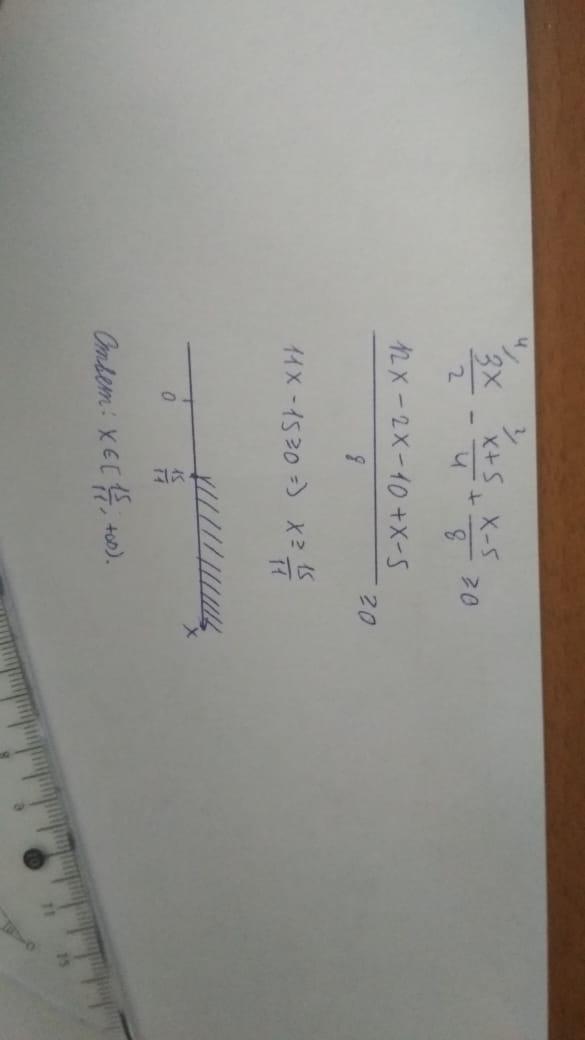 4/ 3x/2 - 2/ x+5/4 + x-5/8 ≥0
12x-2x-10+x-5/8 ≥0
11x-15≥0 => x≥ 15/11
0 15/11 x
Ответ: x∈[15/11; +∞).
8
9
10
11
15